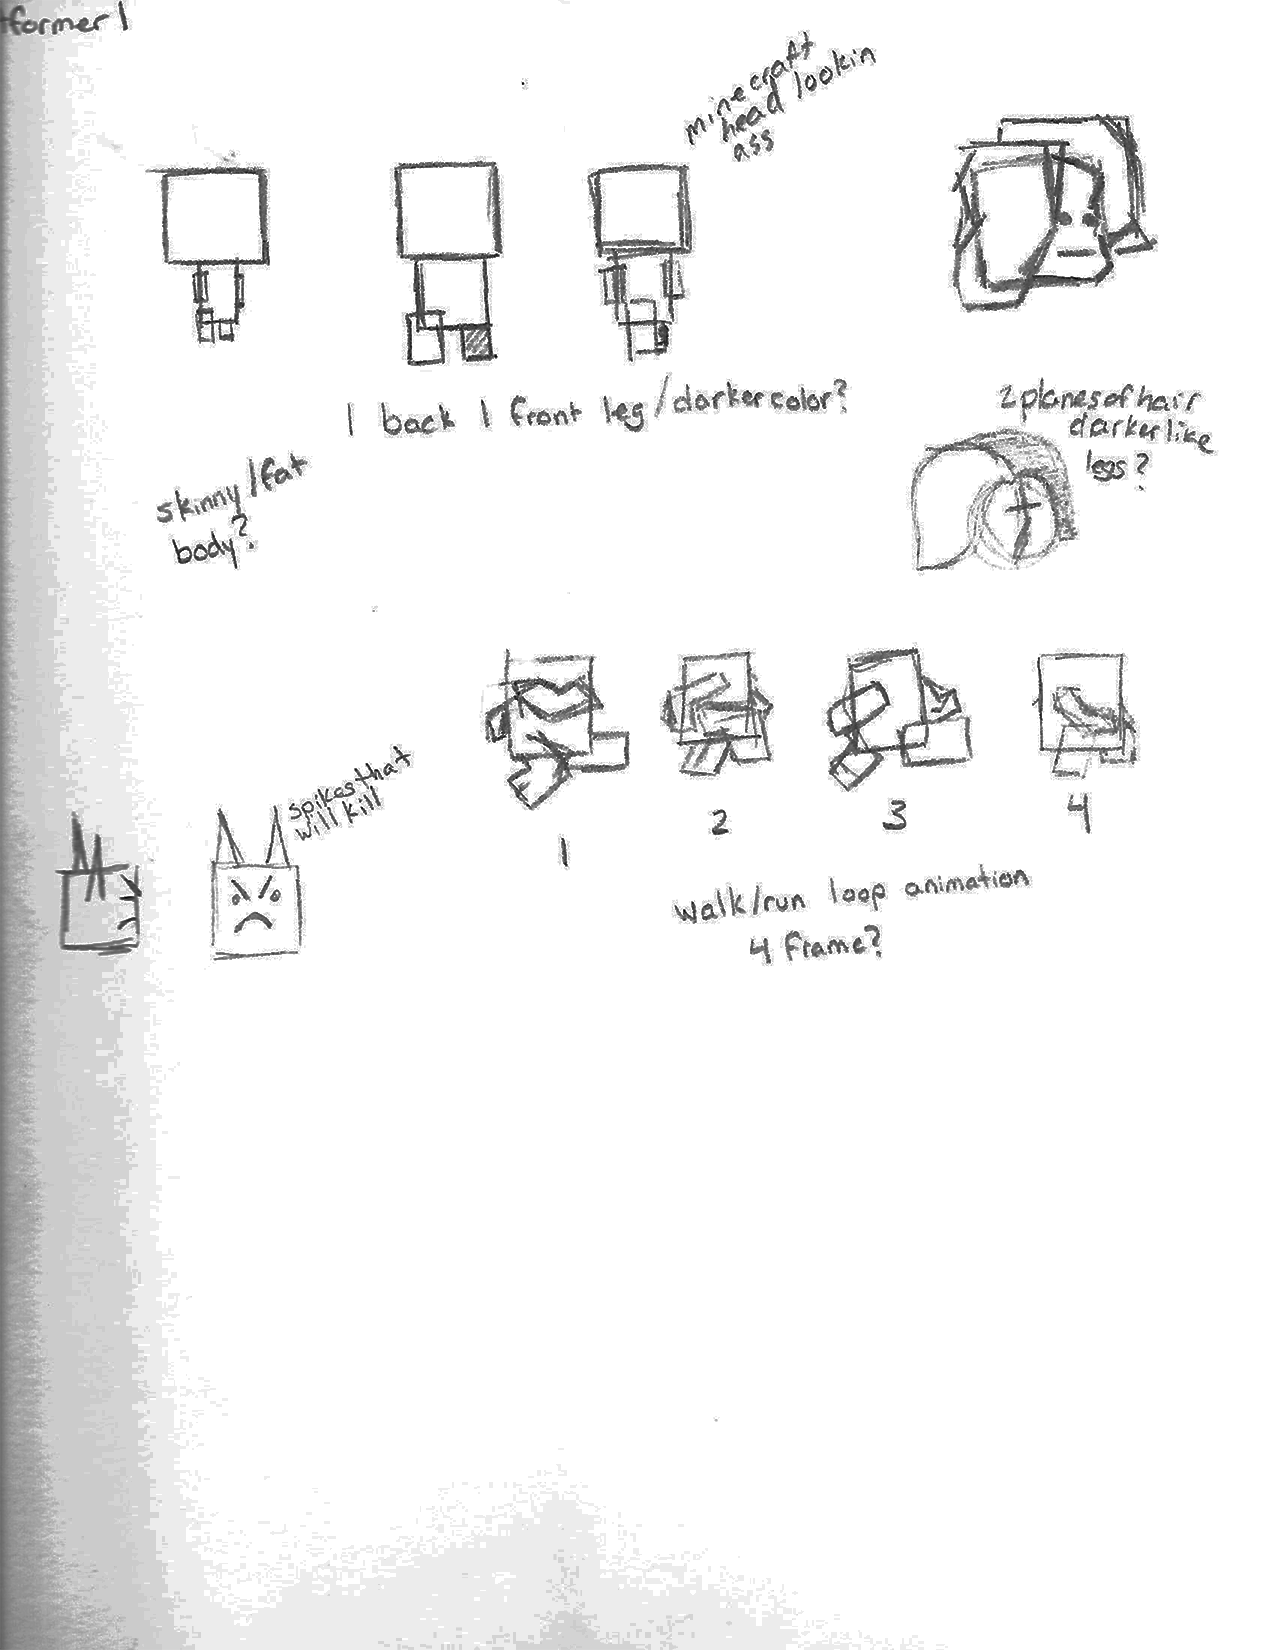 tformer 1
minecraft
head lookin
ass
1 back 1 front leg/darker color?
2 planes of hair
darker like
legs?
skinny/fat
body?
spikes that
will kill
1
2
3
4
walk/run loop animation
4 frame?